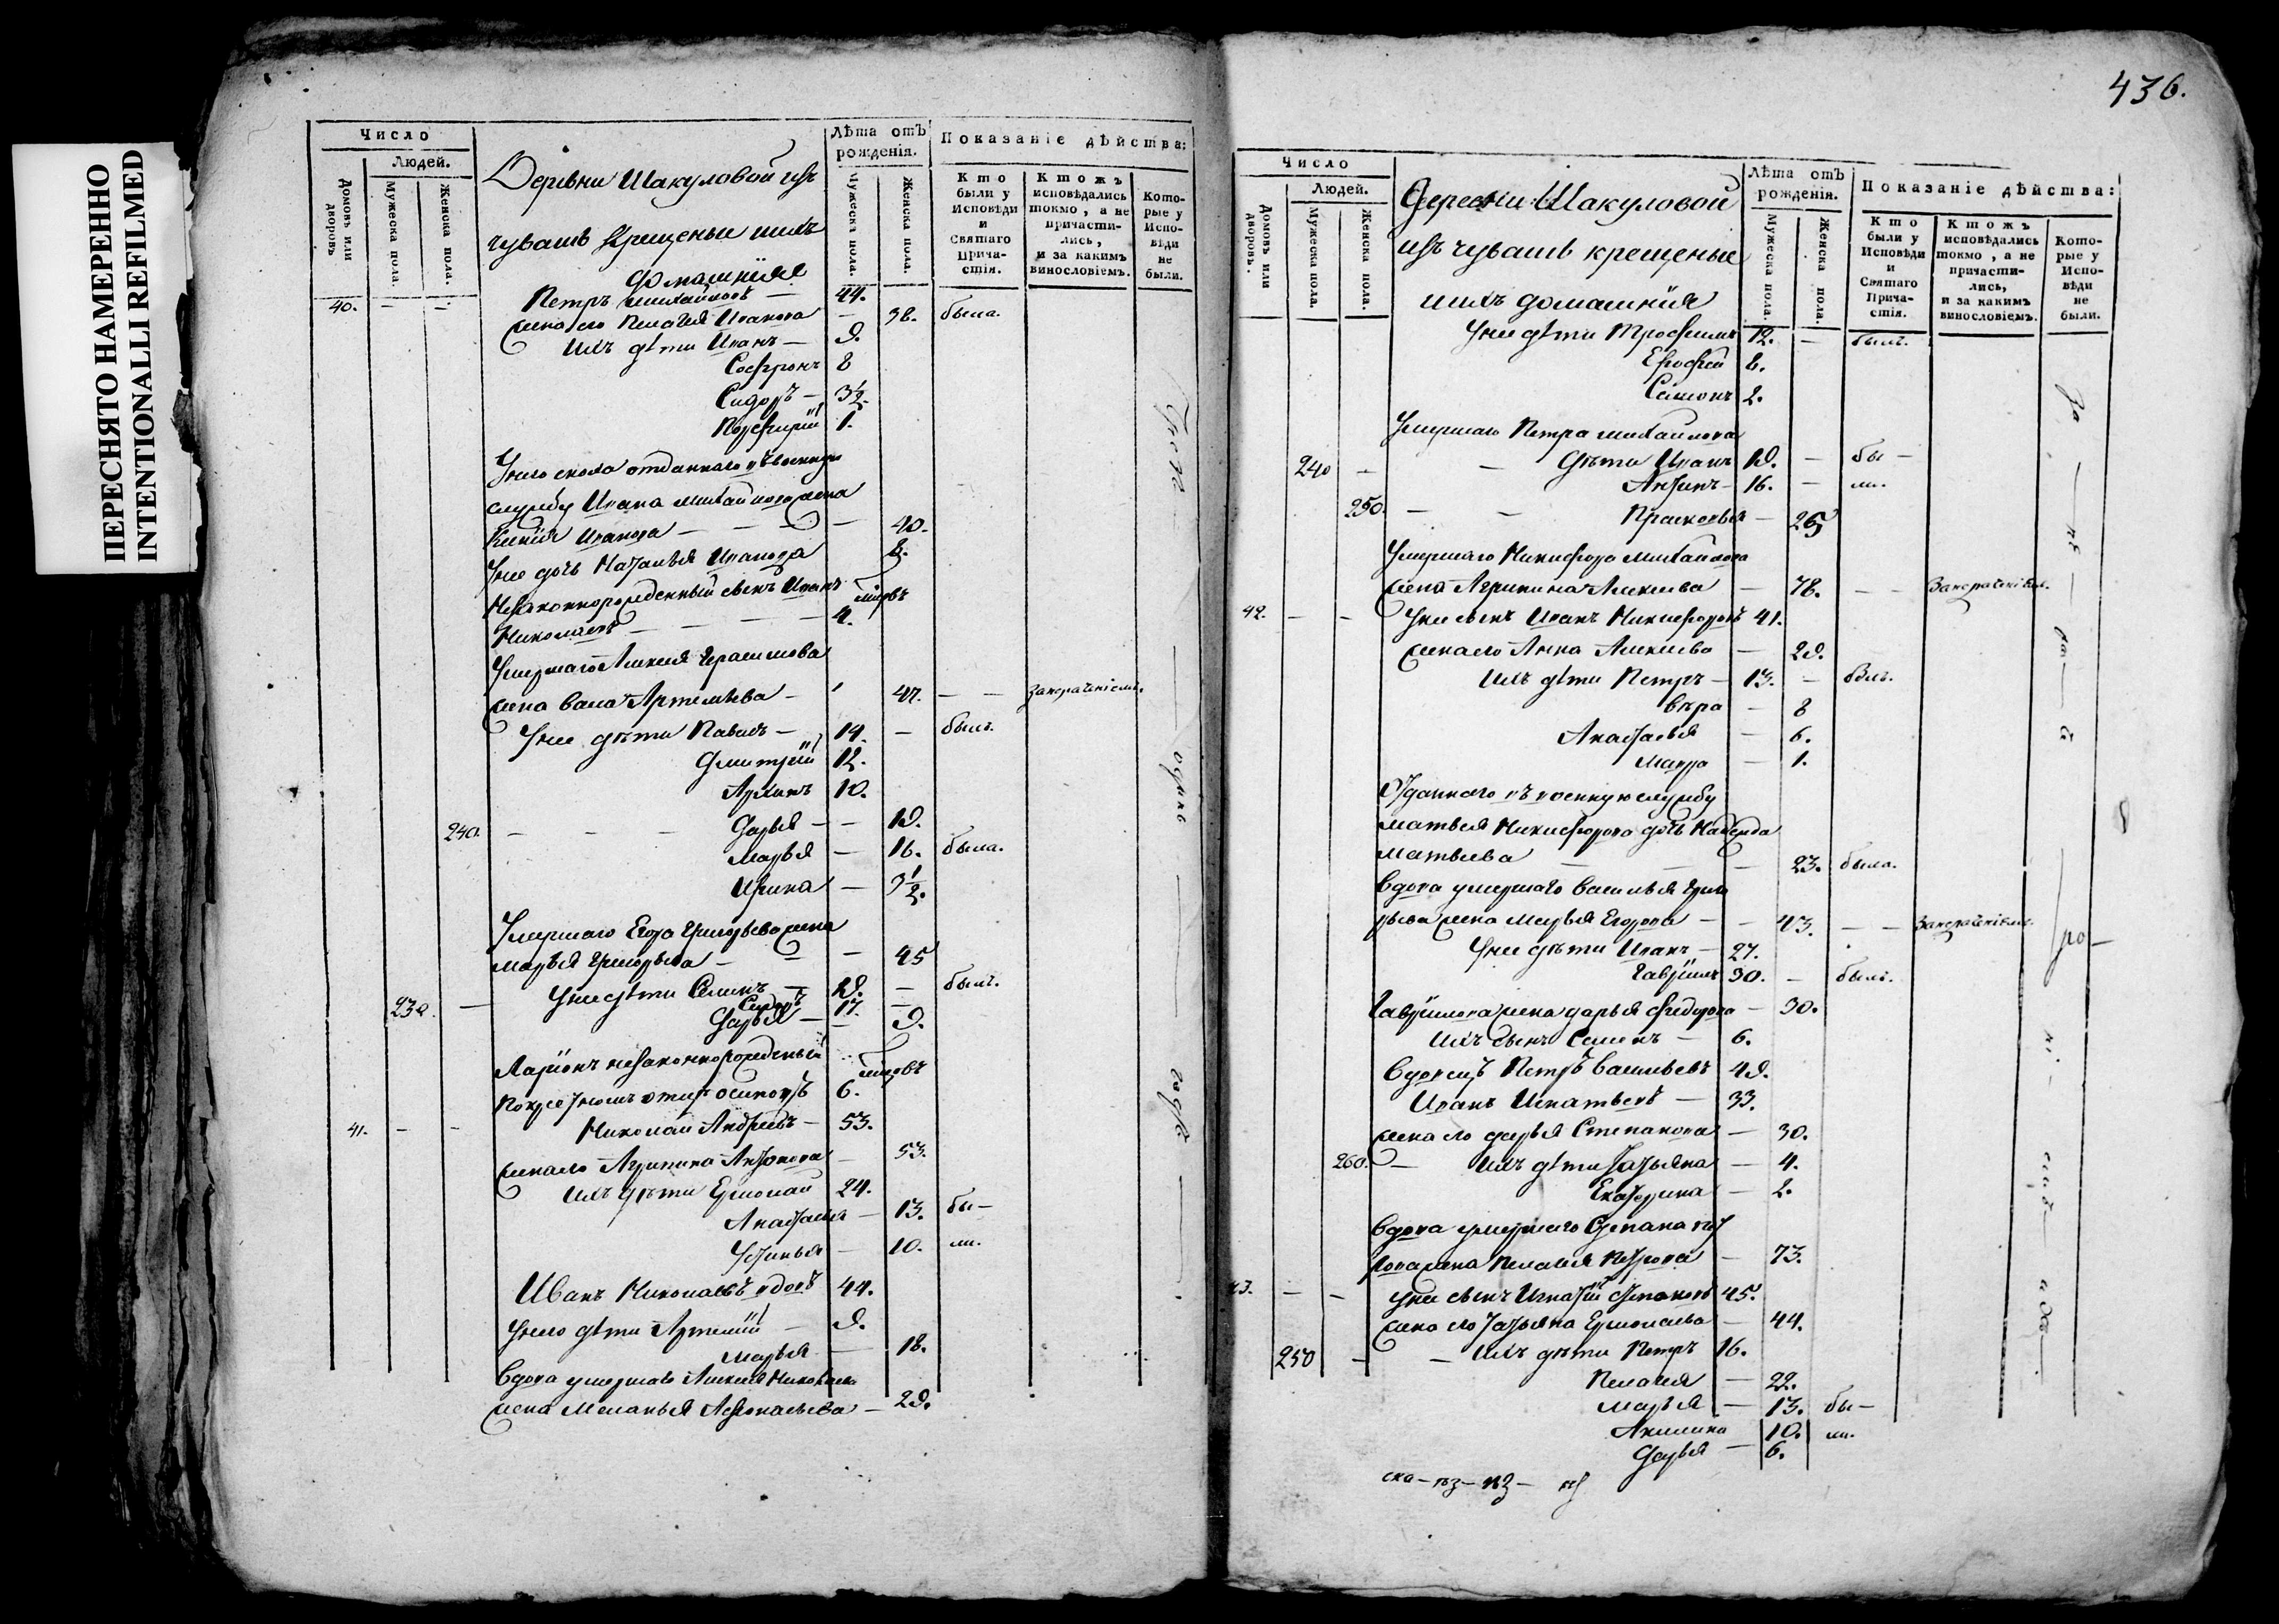 ПЕРЕСНЯТО НАМЕРЕННО
INTENTIONALLI REFILMED
Число
Людей.
Домовъ или дворовъ
Мужеска пола.
Женска пола.
Деревни Шакуловой изъ
чувашъ крещеныи ихъ
домашнiя
Лѣта отъ рожденія.
Мужеска пола.
Женска пола.
Показаніе дѣйства:
Кто были у Исповѣди и Святаго Прича-стія.
Ктожъ исповѣдались токмо, а не причасти-лись, и за какимъ винословіемъ.
Кото-рые у Испо-вѣди не были.
40. — — Петръ Михайловъ — 44.
жена его Пелагея Иванова — 38. была.
ихъ дѣти Иванъ — 9.
Софронъ 8
Сидоръ — 3½.
Порфирий 1.
службу Ивана Михайлова жена
Иванова — — — 40.
У нее дочь Наталья Иванова 8.
Незаконнорожденный сынъ Иванъ
Николаевъ — — — — 4.
Умершаго Алексея Герасимова
жена Васа Артемьева — 47. — — за нераченiемъ.
У нее дѣти Павелъ — 19. — былъ.
Дмитрий 12.
10.
240. — — — Дарья — — 19.
Марья — 16. была.
Ирина — 3½.
Умершаго Егора Григорьева жена
Марья Григорьева — — — 45
У нее дѣти Семенъ — 19. — былъ.
Сидоръ 17. —
230. — Дарья — — 9.
Ларiонъ незаконнорожденный
6.
41. — — Николай Андреевъ — 53.
жена его Агрипина Антонова — 53.
ихъ дѣти Ермолай 24.
Анастасья — 13. бы—
Устинья — 10. ли.
Иванъ Николаевъ вдовъ 44.
У него дѣти Артемий — 9.
Марья — 18.
Вдова умершаго Алексея Николаева
жена Меланья Афонасьева — 29.
436.
Число
Людей.
Домовъ или дворовъ.
Мужеска пола.
Женска пола.
Деревни Шакуловой
изъ чувашъ крещеные
ихъ домашнiя
Лѣта отъ рожденія.
Мужеска пола.
Женска пола.
Показаніе дѣйства:
Кто были у Исповѣди и Святаго Прича-стія.
Ктожъ исповѣдались токмо, а не причасти-лись, и за какимъ винословіемъ.
Кото-рые у Испо-вѣди не были.
У нее дѣти Трофимъ 12. — былъ.
Ерофей 8.
Симонъ 2.
Умершаго Петра Михайлова
240 — — дѣти Иванъ 19. — бы —
Антипъ — 16. — ли.
250. — — Прасковья — 25
Умершаго Никифора Михайлова
жена Агрипина Алексеева — 78. — — за нераченiемъ.
42. — — У нее сынъ Иванъ Никифоровъ 41.
жена его Анна Алексеева — 29.
ихъ дѣти Петръ — 13. — былъ.
Вѣра — 8
Анастасья — 6.
Мавра — 1.
Отданнаго въ военную службу
Матвея Никифорова дочь Надежда
Матвеева — — — 23. была.
Вдова умершаго Василья Григо
рьева жена Марья Егорова — — 43. — — за нераченiемъ.
У нее дѣти Иванъ — 27.
Гаврiилъ 30. — былъ.
Гаврiилова жена Дарья Федорова — 30.
ихъ сынъ Семенъ — 6.
Вдовецъ Петръ Васильевъ 49.
Иванъ Игнатьевъ — 33.
жена его Дарья Степанова — 30.
260. — ихъ дѣти Татьяна — 4.
Екатерина — 2.
Вдова умершаго Степана Пет
рова жена Пелагея Петрова — 73.
43. — — У нее сынъ Игнатiй Степановъ 45.
жена его Татьяна Ермолаева — 44.
250 — — ихъ дѣти Петръ 16.
Пелагея — 22.
Марья — 13. бы—
Акилина 10. ли.
Дарья — 6.